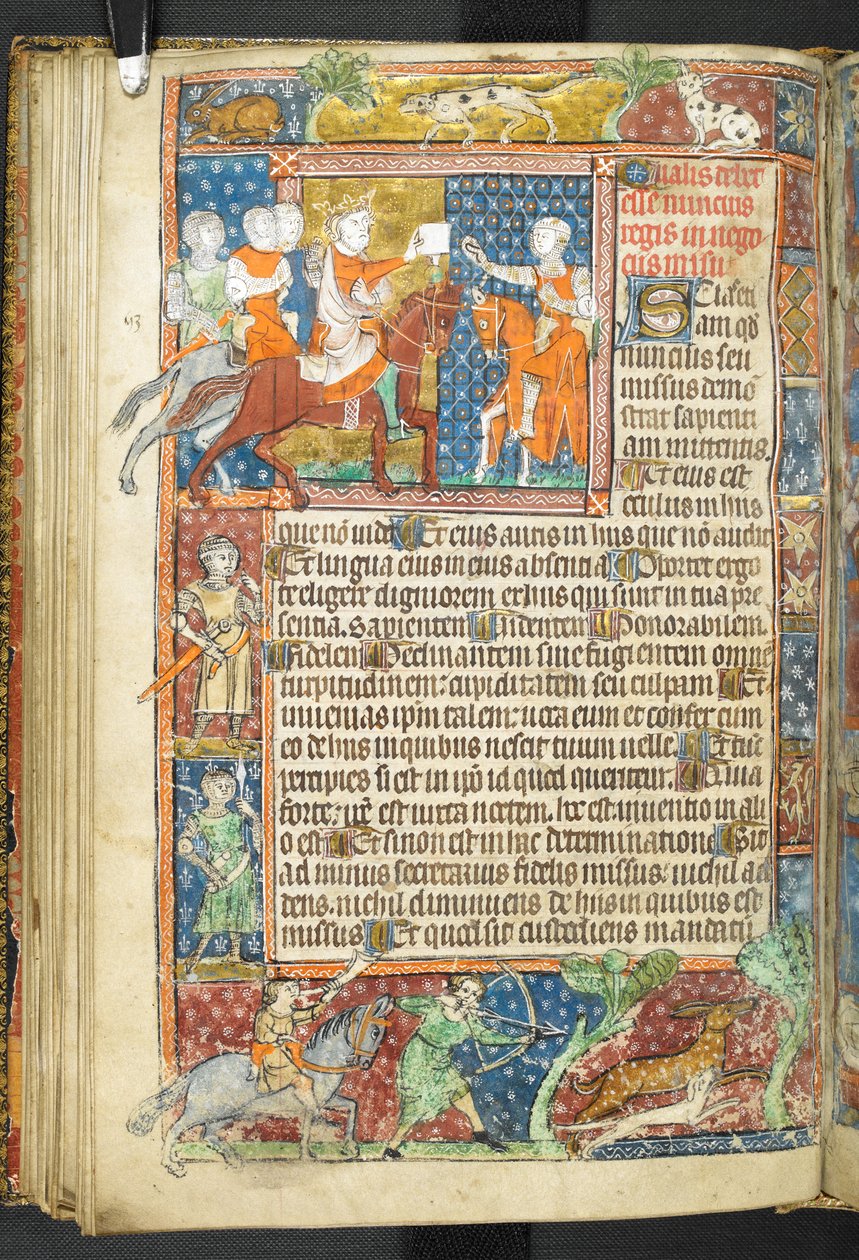 Qualis debet
esse nuncius
regis in nego
ciis missus
Scias eti
am qd
nuncius seu
missus demō
strat sapienti
am mittentis.
Et eius est
oculus in hiis
que nō uidet Et eius auris in hiis que nō audit
Et lingua eius in eius absentia Oportet ergo
te eligere digniorem ex hiis qui sunt in tua pre
sentia. Sapientem Uidentem Honorabilem.
Fidelem Declinantem siue fugientem omnē
turpitudinem: cupiditatem seu culpam Et
inuenias ipm talem: iuxta eum et confer cum
eo de hiis in quibus nescit tuum uelle. Et tūc
percipies si est in ipo id quod queritur. Quia
forte: est iuxta noctem. hec est inuentio in ali
o est Et si non est in hac determinatione Sit
ad minus secretarius fidelis missus: nichil ad
dens. nichil diminuens de hiis in quibus est
missus Et quod sit custodiens mandatū